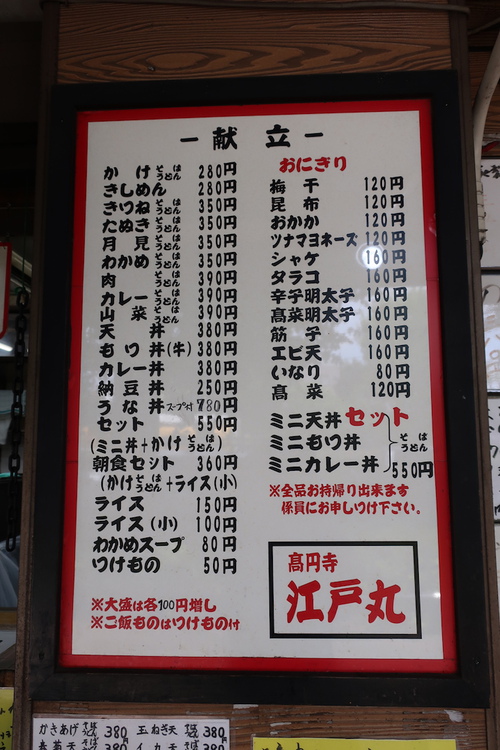 ー献立ー
かけ そば うどん 280円
きしめん 280円
きつね そば うどん 350円
たぬき そば うどん 350円
月見 そば うどん 350円
わかめ そば うどん 350円
肉 そば うどん 390円
カレー そば うどん 390円
山菜 そば うどん 390円
天丼 380円
もつ丼(牛) 380円
カレー丼 380円
納豆丼 250円
うな丼 スープ付 780円
セット 550円
(ミニ丼+かけ そば うどん)
朝食セット 360円
(かけ そば うどん+ライス(小)
ライス 150円
ライス(小) 100円
わかめスープ 80円
つけもの 50円
※大盛は各100円増し
※ご飯ものはつけもの付
おにぎり
梅干 120円
昆布 120円
おかか 120円
ツナマヨネーズ 120円
シャケ 160円
タラコ 160円
辛子明太子 160円
高菜明太子 160円
筋子 160円
エビ天 160円
いなり 80円
高菜 120円
ミニ天丼セット
ミニもつ丼 そば うどん
ミニカレー丼 550円
※全品お持帰り出来ます
係員にお申しつけ下さい。
高円寺
江戸丸
かきあげ そば うどん 380
玉ねぎ天 そば うどん 380
春菊天 380
イカ天 380